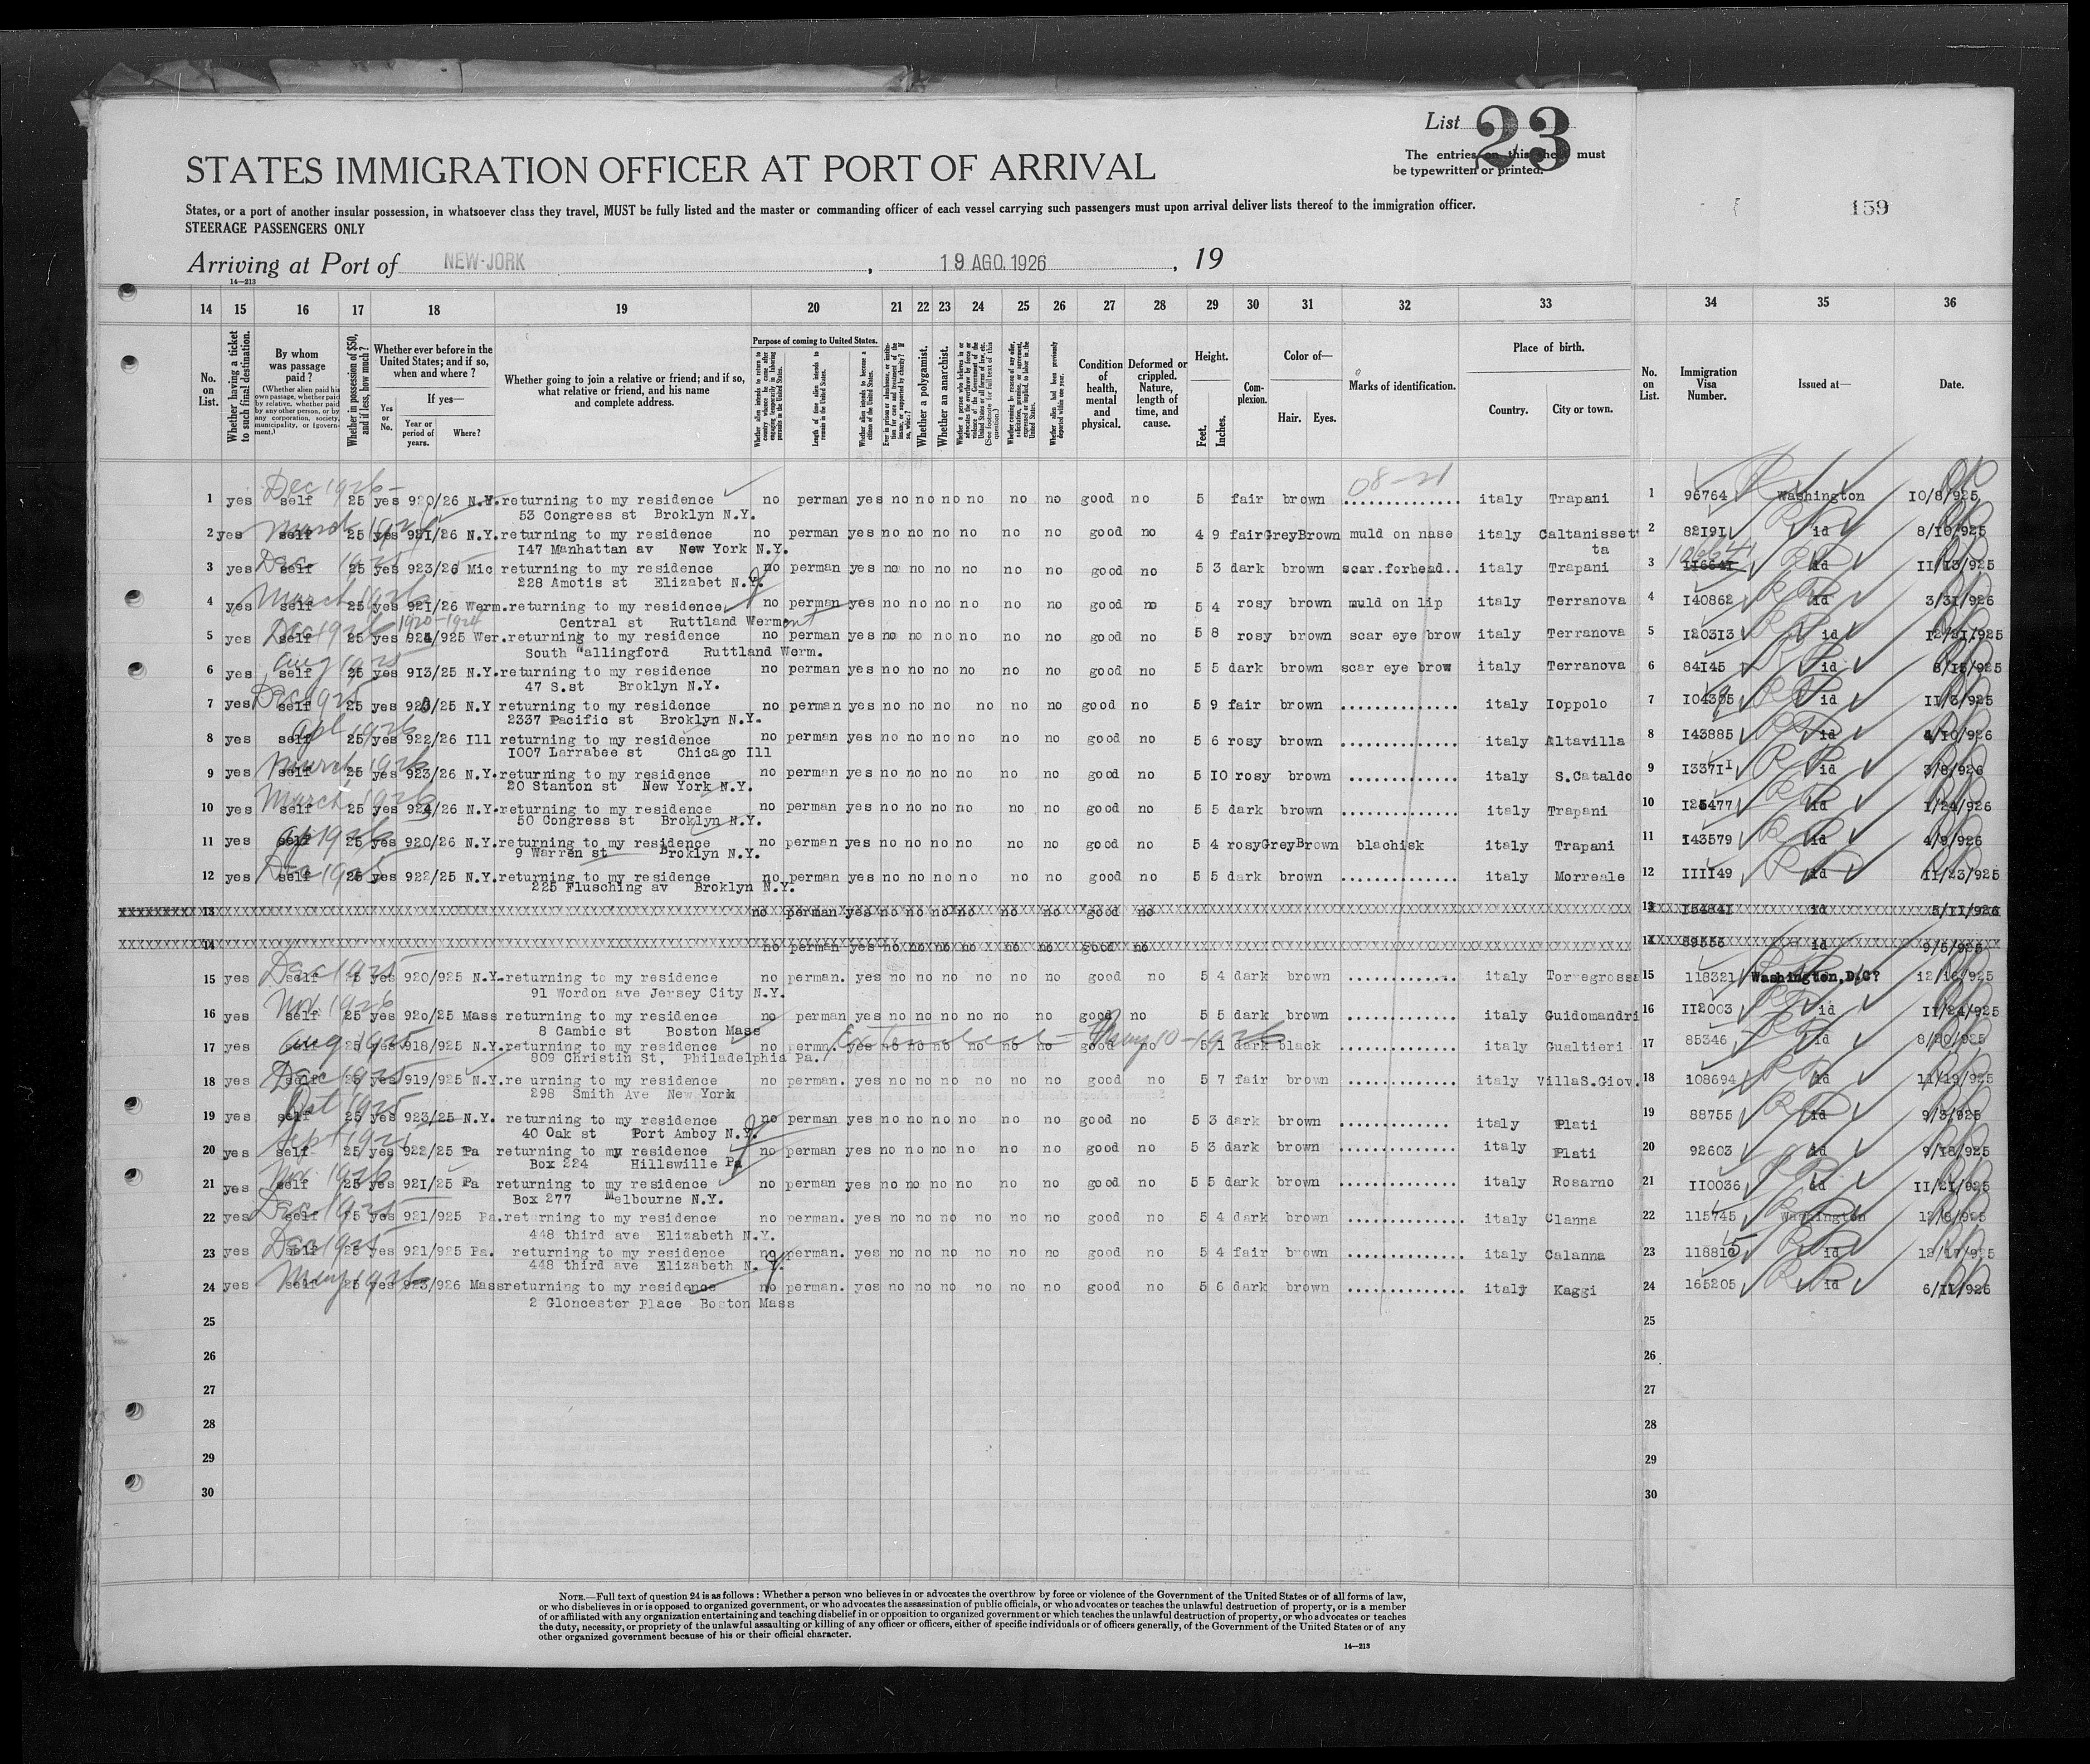 List 23
The entries on this sheet must
be typewritten or printed.
STATES IMMIGRATION OFFICER AT PORT OF ARRIVAL
159
States, or a port of another insular possession, in whatsoever class they travel, MUST be fully listed and the master or commanding officer of each vessel carrying such passengers must upon arrival deliver lists thereof to the immigration officer.
STEERAGE PASSENGERS ONLY
Arriving at Port of NEW-JORK , 19 AGO. 1926 , 19
14—213
14 15 16 17 18 19 20 21 22 23 24 25 26 27 28 29 30 31 32 33 34 35 36
No. on List.
Whether having a ticket to such final destination.
By whom was passage paid?
(Whether alien paid his own passage, whether paid by relative, whether paid by any other person, or by any corporation, society, municipality, or government.)
Whether in possession of $50, and if less, how much?
Whether ever before in the United States; and if so, when and where?
Yes or No.
If yes—
Year or period of years.
Where?
Whether going to join a relative or friend; and if so, what relative or friend, and his name and complete address.
Purpose of coming to United States.
Length of time alien intends to remain in the United States.
Whether alien intends to become a citizen of the United States.
Whether a polygamist.
Whether an anarchist.
Condition of health, mental and physical.
Deformed or crippled. Nature, length of time, and cause.
Height.
Feet. Inches.
Complexion.
Color of—
Hair. Eyes.
Marks of identification.
Place of birth.
Country. City or town.
No. on List.
Immigration Visa Number.
Issued at—
Date.
Dec 1926 08-21
1 yes self 25 yes 920/26 N.Y. returning to my residence no perman yes no no no no no no good no 5 fair brown .............. italy Trapani 1 96764 Washington 10/8/925
53 Congress st Broklyn N.Y.
2 yes self 25 yes 921/26 N.Y. returning to my residence no perman yes no no no no no no good no 4 9 fair Grey Brown muld on nase italy Caltanisset 2 82191 id 8/10/925
147 Manhattan av New York N.Y. ta
3 yes self 25 yes 923/26 Mic returning to my residence no perman yes no no no no no no good no 5 3 dark brown scar.forhead.. italy Trapani 3 116541 id 11/13/925
228 Amotis st Elizabet N.Y.
March 1926
4 yes self 25 yes 921/26 Werm. returning to my residence no perman yes no no no no no no good no 5 4 rosy brown muld on lip italy Terranova 4 140862 id 3/31/926
Central st Ruttland Wermont
1920-1924
5 yes self 25 yes /925 Wer. returning to my residence no perman yes no no no no no no good no 5 8 rosy brown scar eye brow italy Terranova 5 120313 id 12/21/925
South Wallingford Ruttland Werm.
Aug 1925
6 yes self 25 yes 913/25 N.Y. returning to my residence no perman yes no no no no no no good no 5 5 dark brown scar eye brow italy Terranova 6 84145 id 8/15/925
47 S.st Broklyn N.Y.
Dec 1925
7 yes self 25 yes 920/25 N.Y returning to my residence no perman yes no no no no no no good no 5 9 fair brown .............. italy Ioppolo 7 id 11/3/925
2337 Pacific st Broklyn N.Y.
Apl 1926
8 yes self 25 yes 922/26 Ill returning to my residence no perman yes no no no no no no good no 5 6 rosy brown .............. italy Altavilla 8 143885 id 4/10/926
1007 Larrabee st Chicago Ill
March 1926
9 yes self 25 yes 923/26 N.Y. returning to my residence no perman yes no no no no no no good no 5 10 rosy brown .............. italy S.Cataldo 9 133711 id 3/8/926
20 Stanton st New York N.Y.
March 1926
10 yes self 25 yes 924/26 N.Y. returning to my residence no perman yes no no no no no no good no 5 5 dark brown .............. italy Trapani 10 125477 id 1/24/926
50 Congress st Broklyn N.Y.
Ap 1926
11 yes self 25 yes 920/26 N.Y. returning to my residence no perman yes no no no no no no good no 5 4 rosy Grey Brown blachisk italy Trapani 11 143579 id 4/9/926
9 Warren st Broklyn N.Y.
Dec 1925
12 yes self 25 yes 922/25 N.Y. returning to my residence no perman yes no no no no no no good no 5 5 dark brown .............. italy Morreale 12 111149 id 11/23/925
225 Flusching av Broklyn N.Y.
13 no perman yes no no no no no no good no 13 154841 id 5/11/926
14 no perman yes no no no no no no good no 14 id 9/5/925
Dec 1925
15 yes self 25 yes 920/925 N.Y. returning to my residence no perman. yes no no no no no no good no 5 4 dark brown .............. italy Torregrossa 15 118321 Washington,D.C? 12/16/925
91 Wordon ave Jersey City N.Y.
Nov. 1926
16 yes self 25 yes 920/25 Mass returning to my residence no perman yes no no no no no no good no 5 5 dark brown .............. italy Guidomandri 16 112003 id 11/24/925
8 Cambic st Boston Mass
Aug 1925 Extended — May 10-1926
17 yes self 25 yes 918/925 N.Y. returning to my residence no perman. yes no no no no no no good no 5 1 dark black .............. italy Gualtieri 17 85346 id 8/20/925
809 Christin St, Philadelphia Pa.
Dec 1925
18 yes self 25 yes 919/925 N.Y. re urning to my residence no perman. yes no no no no no no good no 5 7 fair brown .............. italy VillaS.Giov. 18 108694 id 11/19/925
298 Smith Ave New York
Oct 1925
19 yes self 25 yes 923/25 N.Y. returning to my residence no perman yes no no no no no no good no 5 3 dark brown .............. italy Plati 19 88755 id 9/3/925
40 Oak st Port Amboy N.Y.
20 yes self 25 yes 922/25 Pa returning to my residence no perman yes no no no no no no good no 5 3 dark brown .............. italy Plati 20 92603 id 9/18/925
Box 224 Hillswille Pa
Nov. 1926
21 yes self 25 yes 921/25 Pa returning to my residence no perman yes no no no no no no good no 5 5 dark brown .............. italy Rosarno 21 110036 id 11/21/925
Box 277 Melbourne N.Y.
Dec 1925
22 yes self 25 yes 921/925 Pa. returning to my residence no perman. yes no no no no no no good no 5 4 dark brown .............. italy Clanna 22 115745 Washington 12/8/925
448 third ave Elizabeth N.Y.
Dec 1925
23 yes self 25 yes 921/925 Pa. returning to my residence no perman. yes no no no no no no good no 5 4 fair brown .............. italy Calanna 23 id 12/17/925
448 third ave Elizabeth N.
May 1926
24 yes self 25 yes 923/926 Mass returning to my residence no perman. yes no no no no no no good no 5 6 dark brown .............. italy Kaggi 24 165205 id 6/11/926
2 Gloncester Place Boston Mass
25 25
26 26
27 27
28 28
29 29
30 30
NOTE.—Full text of question 24 is as follows: Whether a person who believes in or advocates the overthrow by force or violence of the Government of the United States or of all forms of law,
or who disbelieves in or is opposed to organized government, or who advocates the assassination of public officials, or who advocates or teaches the unlawful destruction of property, or is a member
of or affiliated with any organization entertaining and teaching disbelief in or opposition to organized government or which teaches the unlawful destruction of property, or who advocates or teaches
the duty, necessity, or propriety of the unlawful assaulting or killing of any officer or officers, either of specific individuals or of officers generally, of the Government of the United States or of any
other organized government because of his or their official character.
14—213